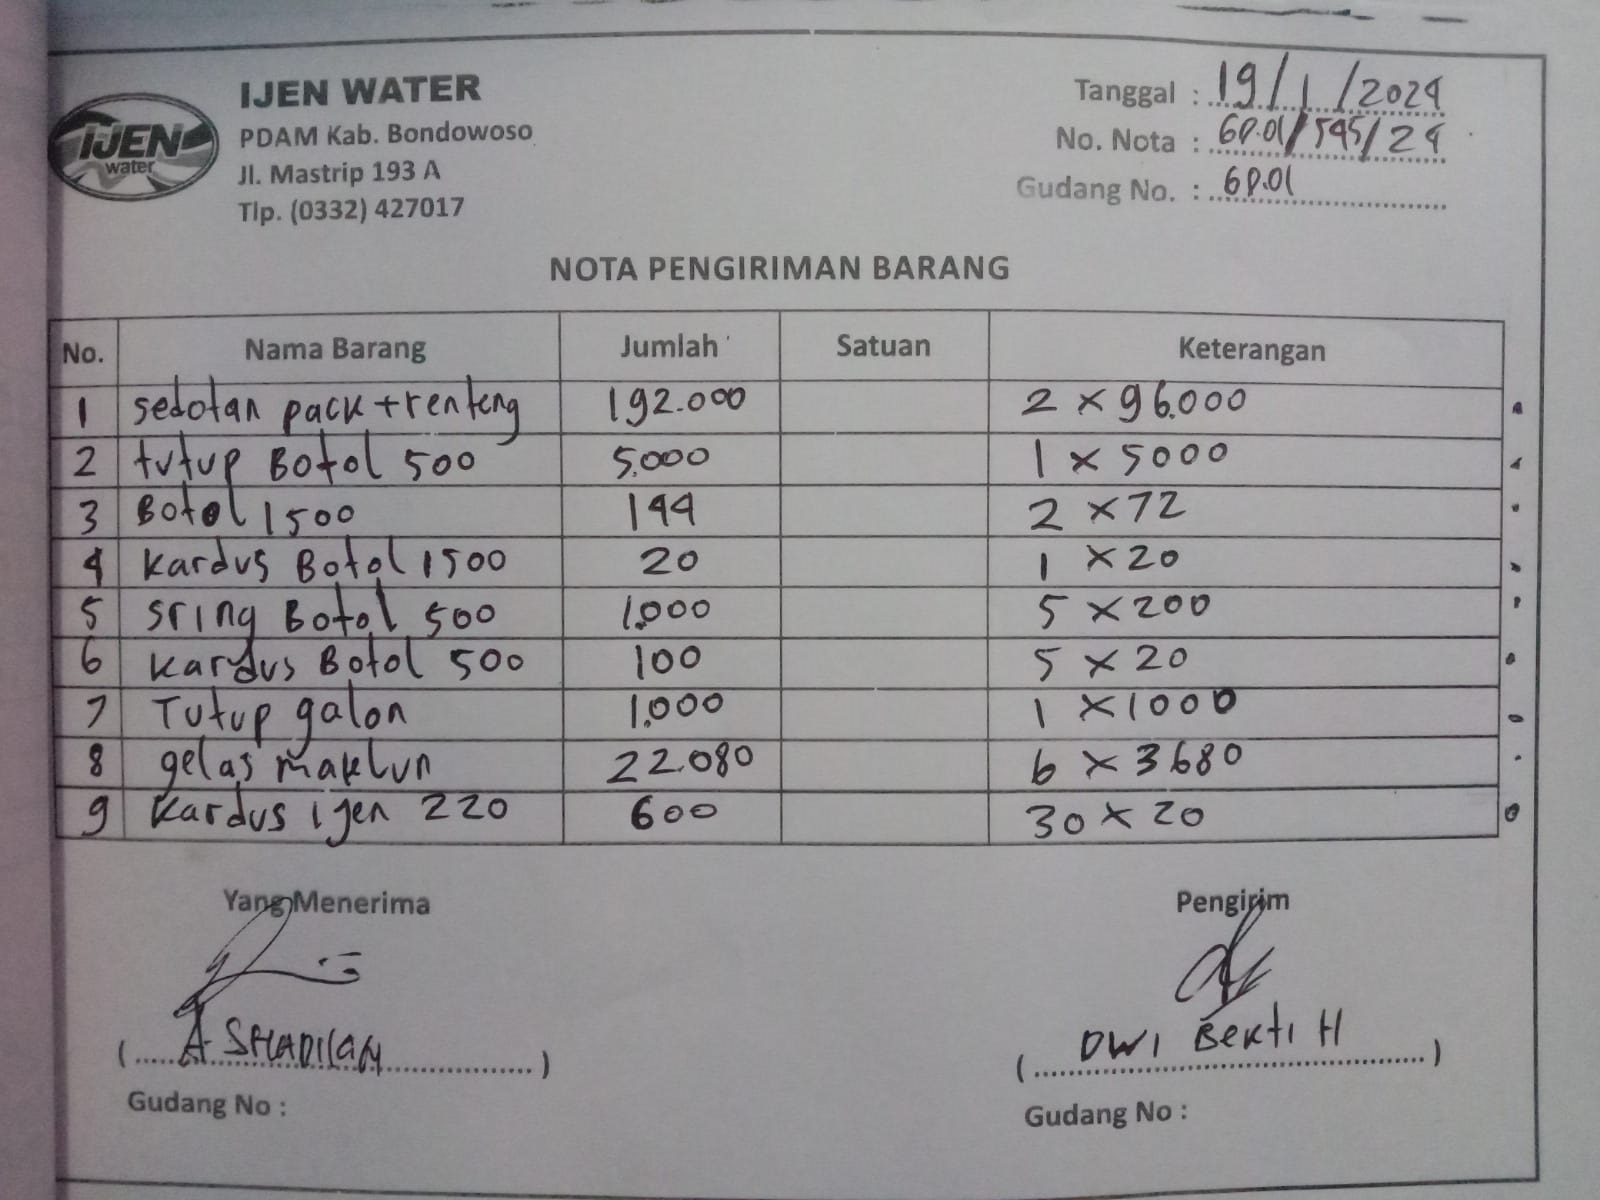 IJEN
water
IJEN WATER
PDAM Kab. Bondowoso
Jl. Mastrip 193 A
Tlp. (0332) 427017
Tanggal : 19/1/2024
No. Nota : 6P.01/545/24
Gudang No. : 6P.01
NOTA PENGIRIMAN BARANG
No. Nama Barang Jumlah Satuan Keterangan
1 sedotan pack + renteng 192.000 2 × 96.000
2 tutup Botol 500 5.000 1 × 5000
3 Botol 1500 144 2 × 72
4 kardus Botol 1500 20 1 × 20
5 sring Botol 500 1.000 5 × 200
6 kardus Botol 500 100 5 × 20
7 Tutup galon 1.000 1 × 1000
8 gelas maklun 22.080 6 × 3680
9 kardus ijen 220 600 30 × 20
Yang Menerima
Pengirim
( A )
( DWI Bekti H )
Gudang No :
Gudang No :